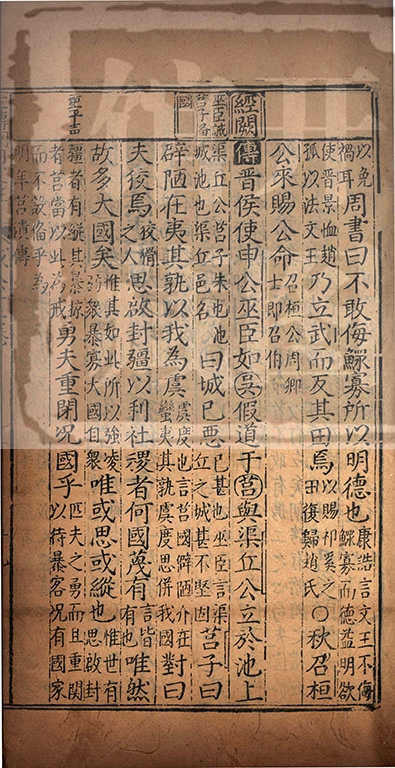 以免
禍耳
周書曰不敢侮鰥寡所以明德也
康誥言文王不侮
鰥寡而德益明欲
使晋景恤趙
孤以法文王
乃立武而反其田焉
以賜祁奚之
田復歸趙氏
○秋召桓
公來賜公命
召桓公周卿
士即召伯
經闕
傳晋侯使申公巫臣如吳假道于莒與渠丘公立於池上
巫臣誡
莒子备
國
渠丘公莒子朱也池
城池也渠丘邑名
曰城已惡
已甚也巫臣言渠
丘之城甚不堅固
莒子曰
辟陋在夷其孰以我為虞
虞度也言莒國僻陋介在
蠻夷其孰虞度思併我國
對曰
夫狡焉
狡猾
之人
思啟封疆以利社稷者何國蔑有
言皆
有也
唯然
故多大國矣
惟其如此所以強凌
弱衆暴寡大國自衆
唯或思或縱也
惟世有
思啟封
疆者有縱其暴掠
者莒當以此為戒
勇夫重閉况國乎
匹夫之勇而且重閉
以待暴客况有國家
而不設備乎為
明年莒潰傳